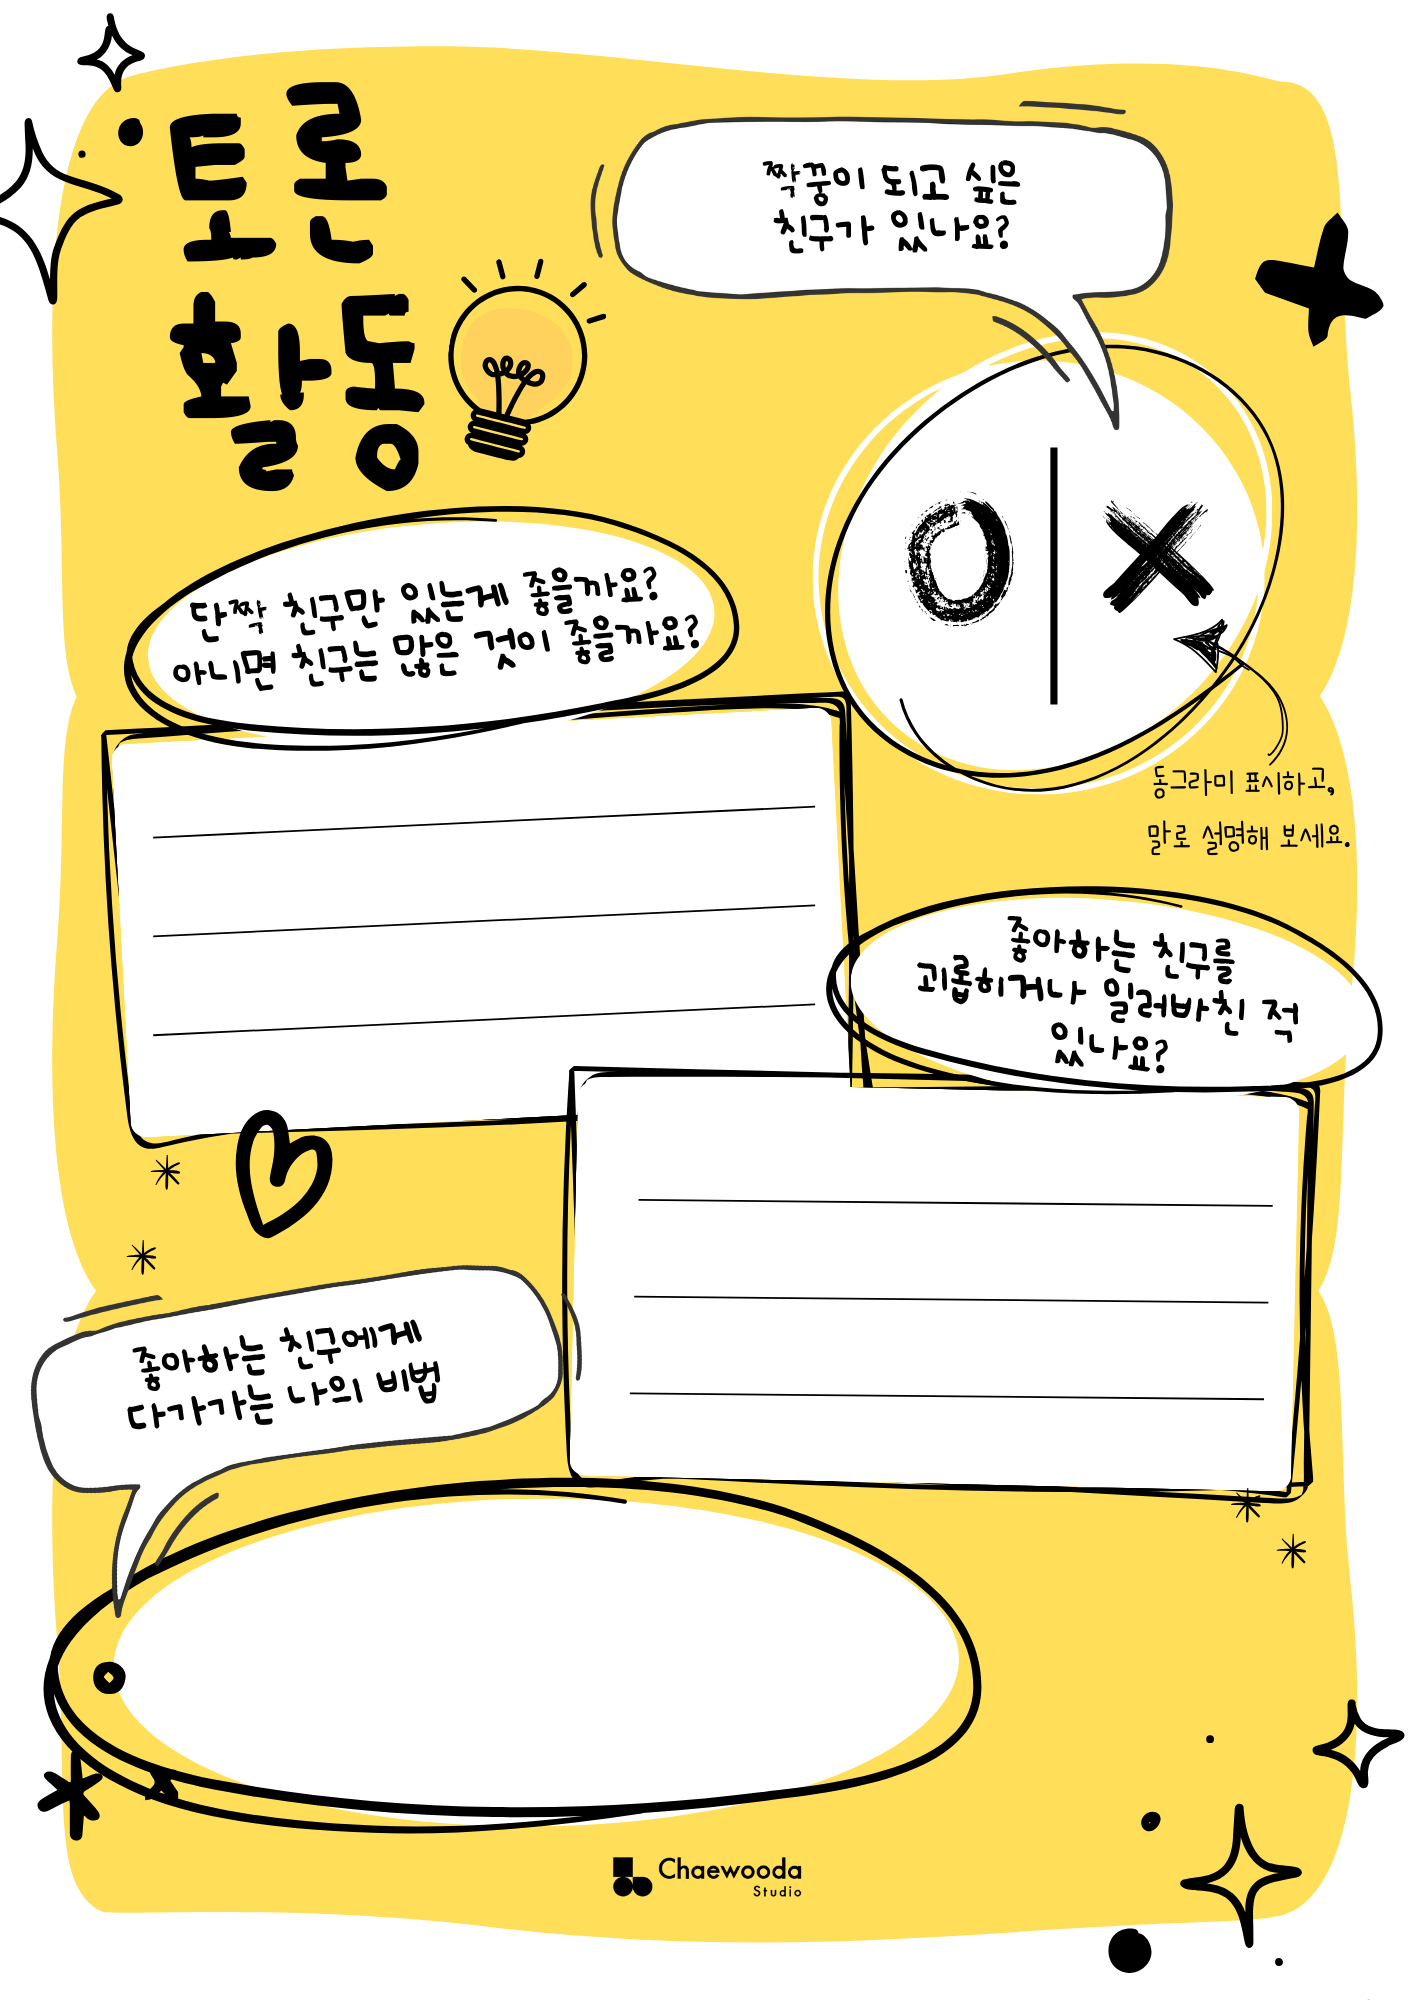 토론
활동
짝꿍이 되고 싶은
친구가 있나요?
O | X
동그라미 표시하고,
말로 설명해 보세요.
단짝 친구만 있는게 좋을까요?
아니면 친구는 많은 것이 좋을까요?
좋아하는 친구를
괴롭히거나 일러바친 적
있나요?
좋아하는 친구에게
다가가는 나의 비법
Chaewooda
Studio